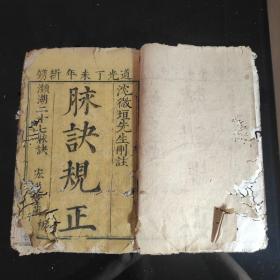 道光丁未年新鐫
沈微垣先生刪註
脉訣規正
瀕湖二十七脉訣
宏